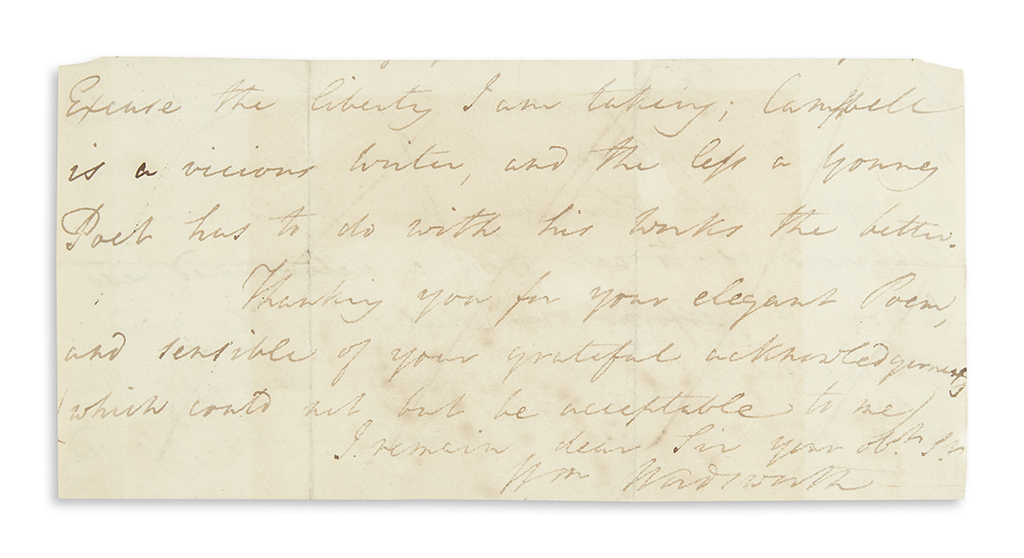 Excuse the liberty I am taking; Campbell
is a vicious Writer, and the less a young
Poet has to do with his Works the better.
Thanking you for your elegant Poem,
and sensible of your grateful acknowledgements
(which could not but be acceptable to me)
I remain dear Sir your obt. St.
Wm Wordsworth